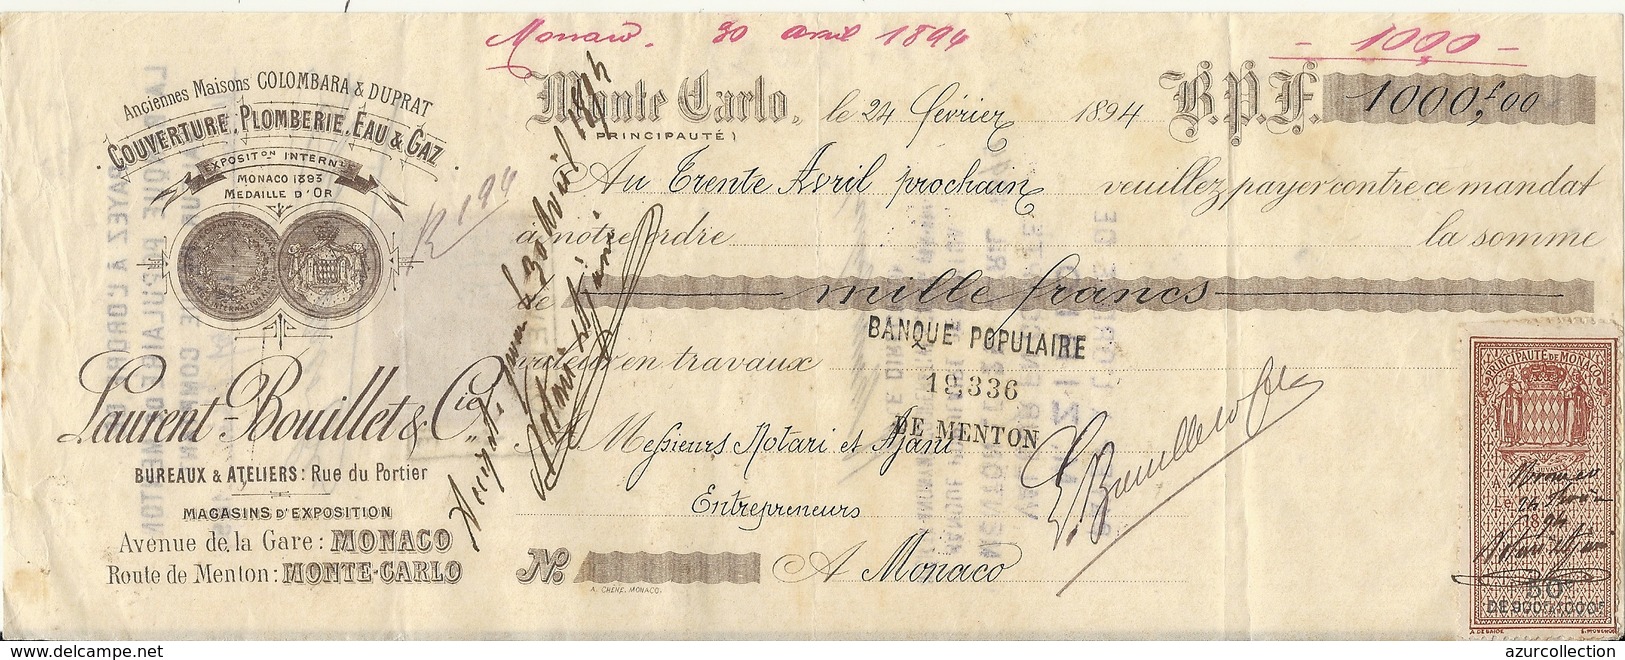 Monaco. 30 avril 1894
- 1000 -
Anciennes Maisons COLOMBARA & DUPRAT
COUVERTURE, PLOMBERIE, EAU & GAZ
EXPOSITON INTERNLE
MONACO 1893
MEDAILLE D'OR
Laurent-Bouillet & Cie
BUREAUX & ATELIERS: Rue du Portier
MAGASINS D'EXPOSITION
Avenue de la Gare: MONACO
Route de Menton: MONTE-CARLO
Monte Carlo, le 24 février 1894 B.P.F. 1000,f00
(PRINCIPAUTÉ)
Au Trente Avril prochain veuillez payer contre ce mandat
à notre ordre la somme
de mille francs
valeur en travaux
BANQUE POPULAIRE
19,336
DE MENTON
A Messieurs Notari et Ajani
Entrepreneurs
No. A Monaco
A. CHÊNE, MONACO.
Accepté pour le 30 Avril 1894
Notari et Ajani
R 194
L. Bouillet & Cie
PRINCIPAUTÉ DE MONACO
DEO JUVANTE
Monaco
Le 24
1894
Notari et Ajani
50c
DE 900 À 1000F
www.delcampe.net
azurcollection